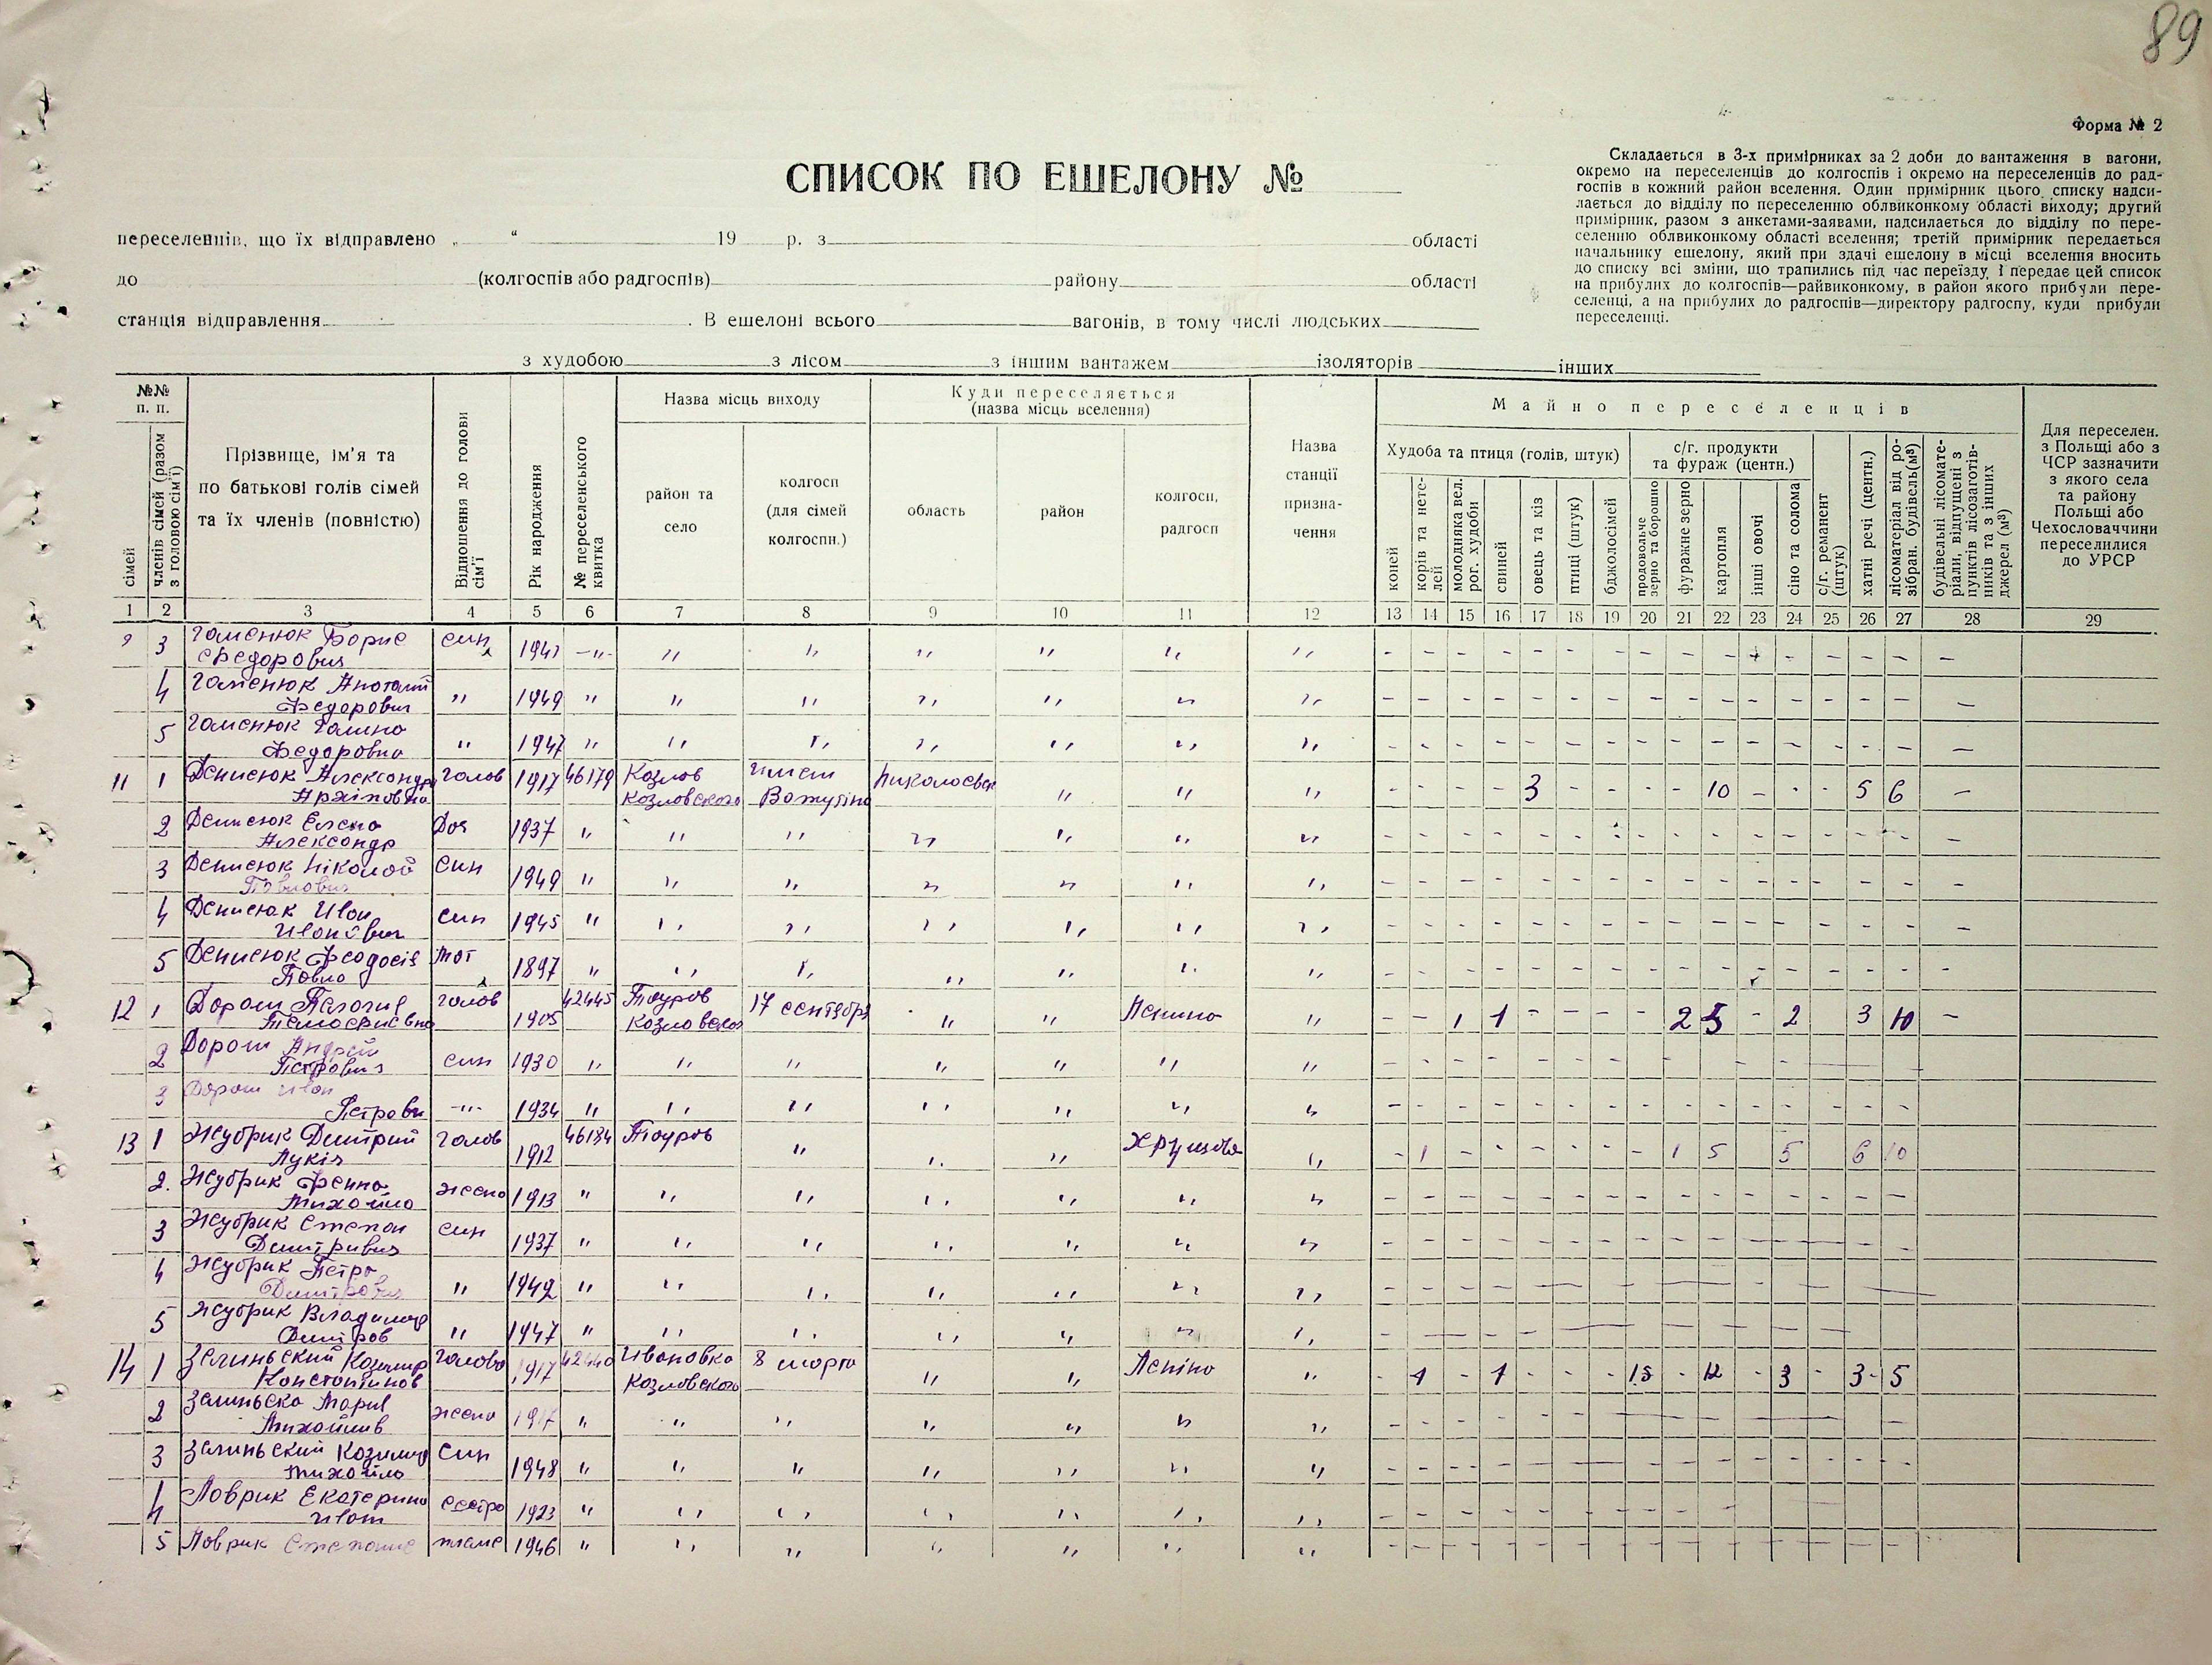 89
Форма № 2
СПИСОК ПО ЕШЕЛОНУ №
Складається в 3-х примірниках за 2 доби до вантаження в вагони,
окремо на переселенців до колгоспів і окремо на переселенців до рад-
госпів в кожний район вселення. Один примірник цього списку надси-
лається до відділу по переселенню облвиконкому області виходу; другий
примірник, разом з анкетами-заявами, надсилається до відділу по пере-
селенню облвиконкому області вселення; третій примірник передається
начальнику ешелону, який при здачі ешелону в місці вселення вносить
до списку всі зміни, що трапились під час переїзду, і передає цей список
на прибулих до колгоспів—райвиконкому, в район якого прибули пере-
селенці, а на прибулих до радгоспів—директору радгоспу, куди прибули
переселенці.
переселенців, що їх відправлено „ “ 19 р. з області
до (колгоспів або радгоспів) району області
станція відправлення . В ешелоні всього вагонів, в тому числі людських
з худобою з лісом з іншим вантажем ізоляторів інших
№№ п. п.
сімей
членів сімей (разом з головою сім'ї)
Прізвище, ім'я та
по батькові голів сімей
та їх членів (повністю)
Відношення до голови сім'ї
Рік народження
№ переселенського квитка
Назва місць виходу
район та село
колгосп (для сімей колгоспн.)
Куди переселяється
(назва місць вселення)
область
район
колгосп, радгосп
Назва станції призна-чення
Майно переселенців
Худоба та птиця (голів, штук)
коней
корів та нете-лей
молодняка вел. рог. худоби
свиней
овець та кіз
птиці (штук)
бджолосімей
с/г. продукти та фураж (центн.)
продовольче зерно та борошно
фуражне зерно
картопля
інші овочі
сіно та солома
с/г. реманент (штук)
хатні речі (центн.)
лісоматеріал від ро-зібран. будівель(м³)
будівельні лісомате-ріали, відпущені з пунктів лісозаготів-ників та з інших джерел (м³)
Для переселен.
з Польщі або з
ЧСР зазначити
з якого села
та району
Польщі або
Чехословаччини
переселилися
до УРСР
1 2 3 4 5 6 7 8 9 10 11 12 13 14 15 16 17 18 19 20 21 22 23 24 25 26 27 28 29
9 3 Гаменюк Борис Федорович син 1941 -"- " " " " " " - - - - - - - - - - + - - - - -
4 Гаменюк Анатолий Федорович " 1949 " " " " " " " - - - - - - - - - - - - - - - -
5 Гаменюк Галина Федоровна " 1947 " " " " " " " - - - - - - - - - - - - - - - -
11 1 Денисюк Александра Архіповна голов 1917 46179 Козлов Козловского імені Ватутіна Николаевск " " " - - - - 3 - - - - 10 - - - 5 6 -
2 Денисюк Елена Александр Доч 1937 " " " " " " " - - - - - - - - - - - - - - - -
3 Денисюк Ніколай Павлович син 1949 " " " " " " " - - - - - - - - - - - - - - - -
4 Денисюк Иван Иванович син 1945 " " " " " " " - - - - - - - - - - - - - - - -
5 Денисюк Феодосія Павло мат 1897 " " " " " " " - - - - - - - - - - - - - - - -
12 1 Дорош Тимофиевна голов 1905 42445 Тауров Козловского 17 сентября " " Ленина " - - 1 1 - - - - 2 5 - 2 3 10 -
2 Дорош Андрей Петрович син 1930 " " " " " " "
3 Дорош Иван Петрови -"- 1934 " " " " " " " - - - - - - - - - - - - - - -
13 1 Жубрик Дмитрий Лукич голов 1912 46184 Тауров " " " Хрущова " - 1 - - - - - - 1 5 5 6 10
2. Жубрик Фенна Михайло жена 1913 " " " " " " " - - - - - - - - - - - - - - -
3 Жубрик Степан Дмитривич син 1937 " " " " " " "
4 Жубрик Петро Дмитрович " 1942 " " " " " " "
5 Жубрик Владимир Дмитров " 1947 " " " " " " "
14 1 Зелиньский Казимир Константинов голова 1917 42440 Ивановка Козловского 8 марта " " Леніна " - 1 - 1 - - - 1.5 - 12 - 3 - 3 - 5
2 Зелиньска Мария Михайлив жена 1917 " " " " " " "
3 Зелиньский Казимир Михайло син 1948 " " " " " " "
4 Лаврик Екатерина Иван сестра 1923 " " " " " " "
5 Лаврик Степание племе 1946 " " " " " " "